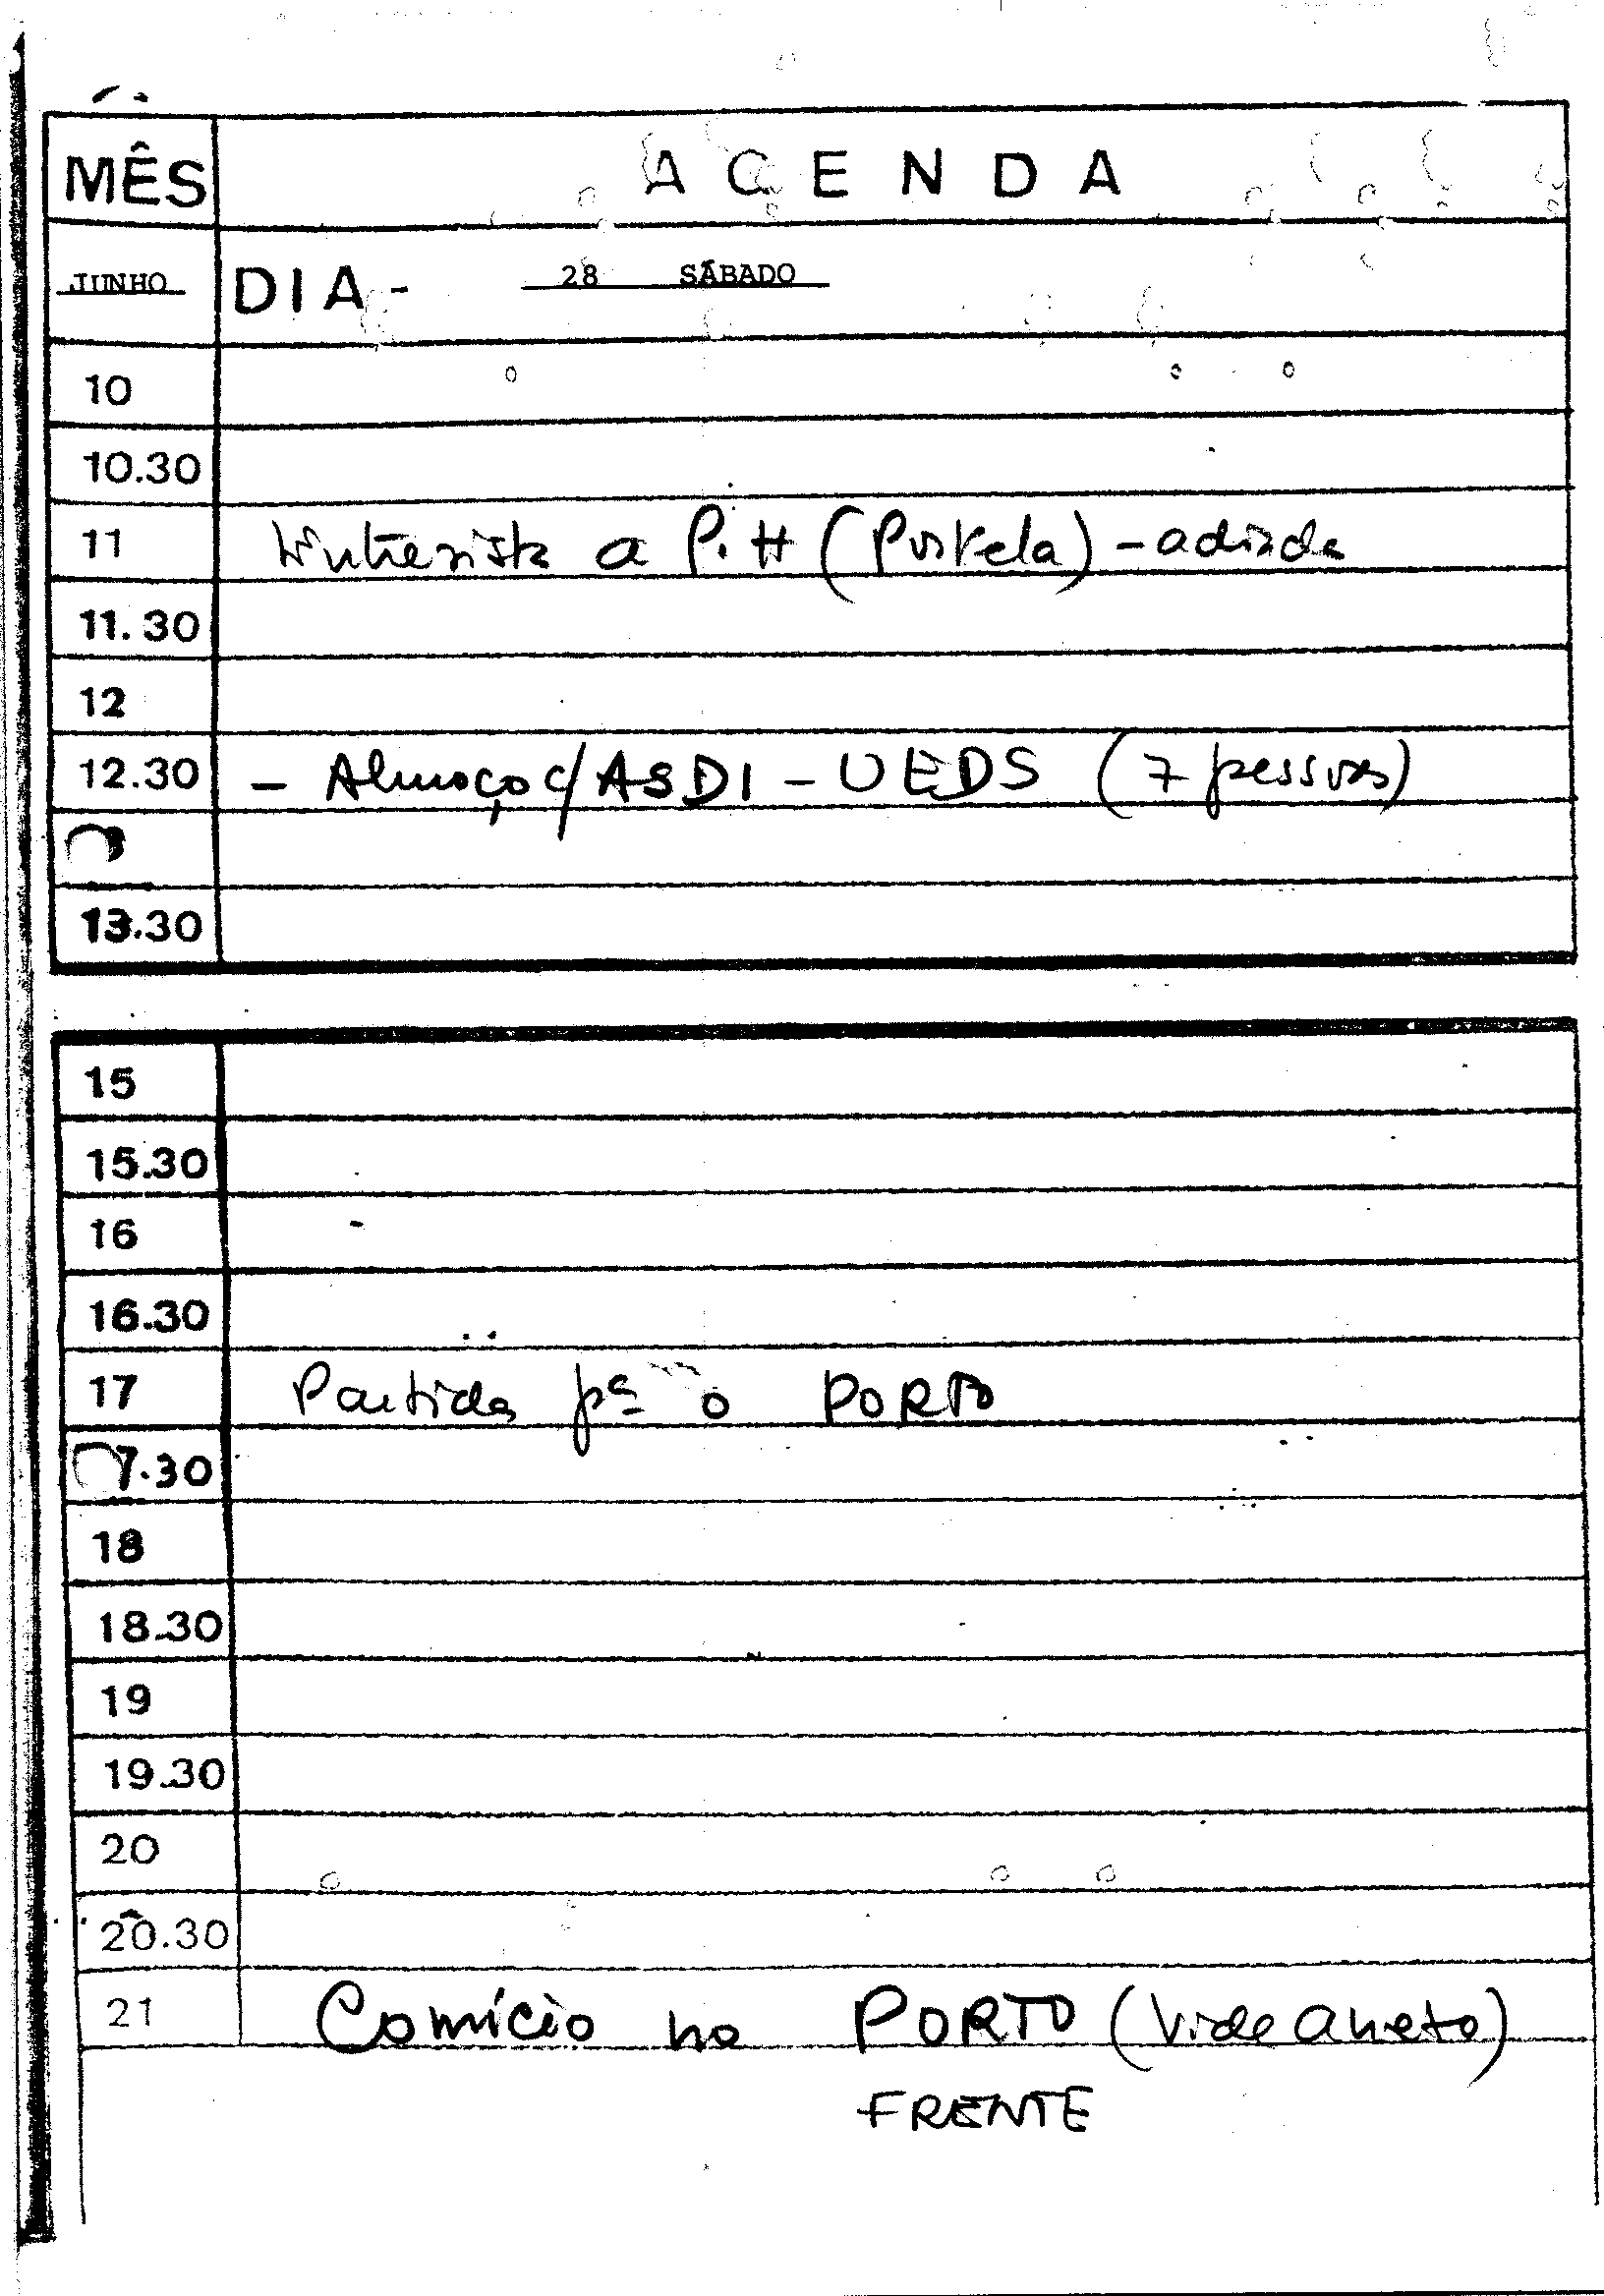 MÊS AGENDA
JUNHO DIA - 28 SÁBADO
10
10.30
11 Entrevista a P.H (Portela) - adiada
11.30
12
12.30 - Almoço c/ ASDI - UEDS (7 pessoas)
13.30
15
15.30
16
16.30
17 Partida pª o PORTO
7.30
18
18.30
19
19.30
20
20.30
21 Comício no PORTO (Vide aneto)
FRENTE